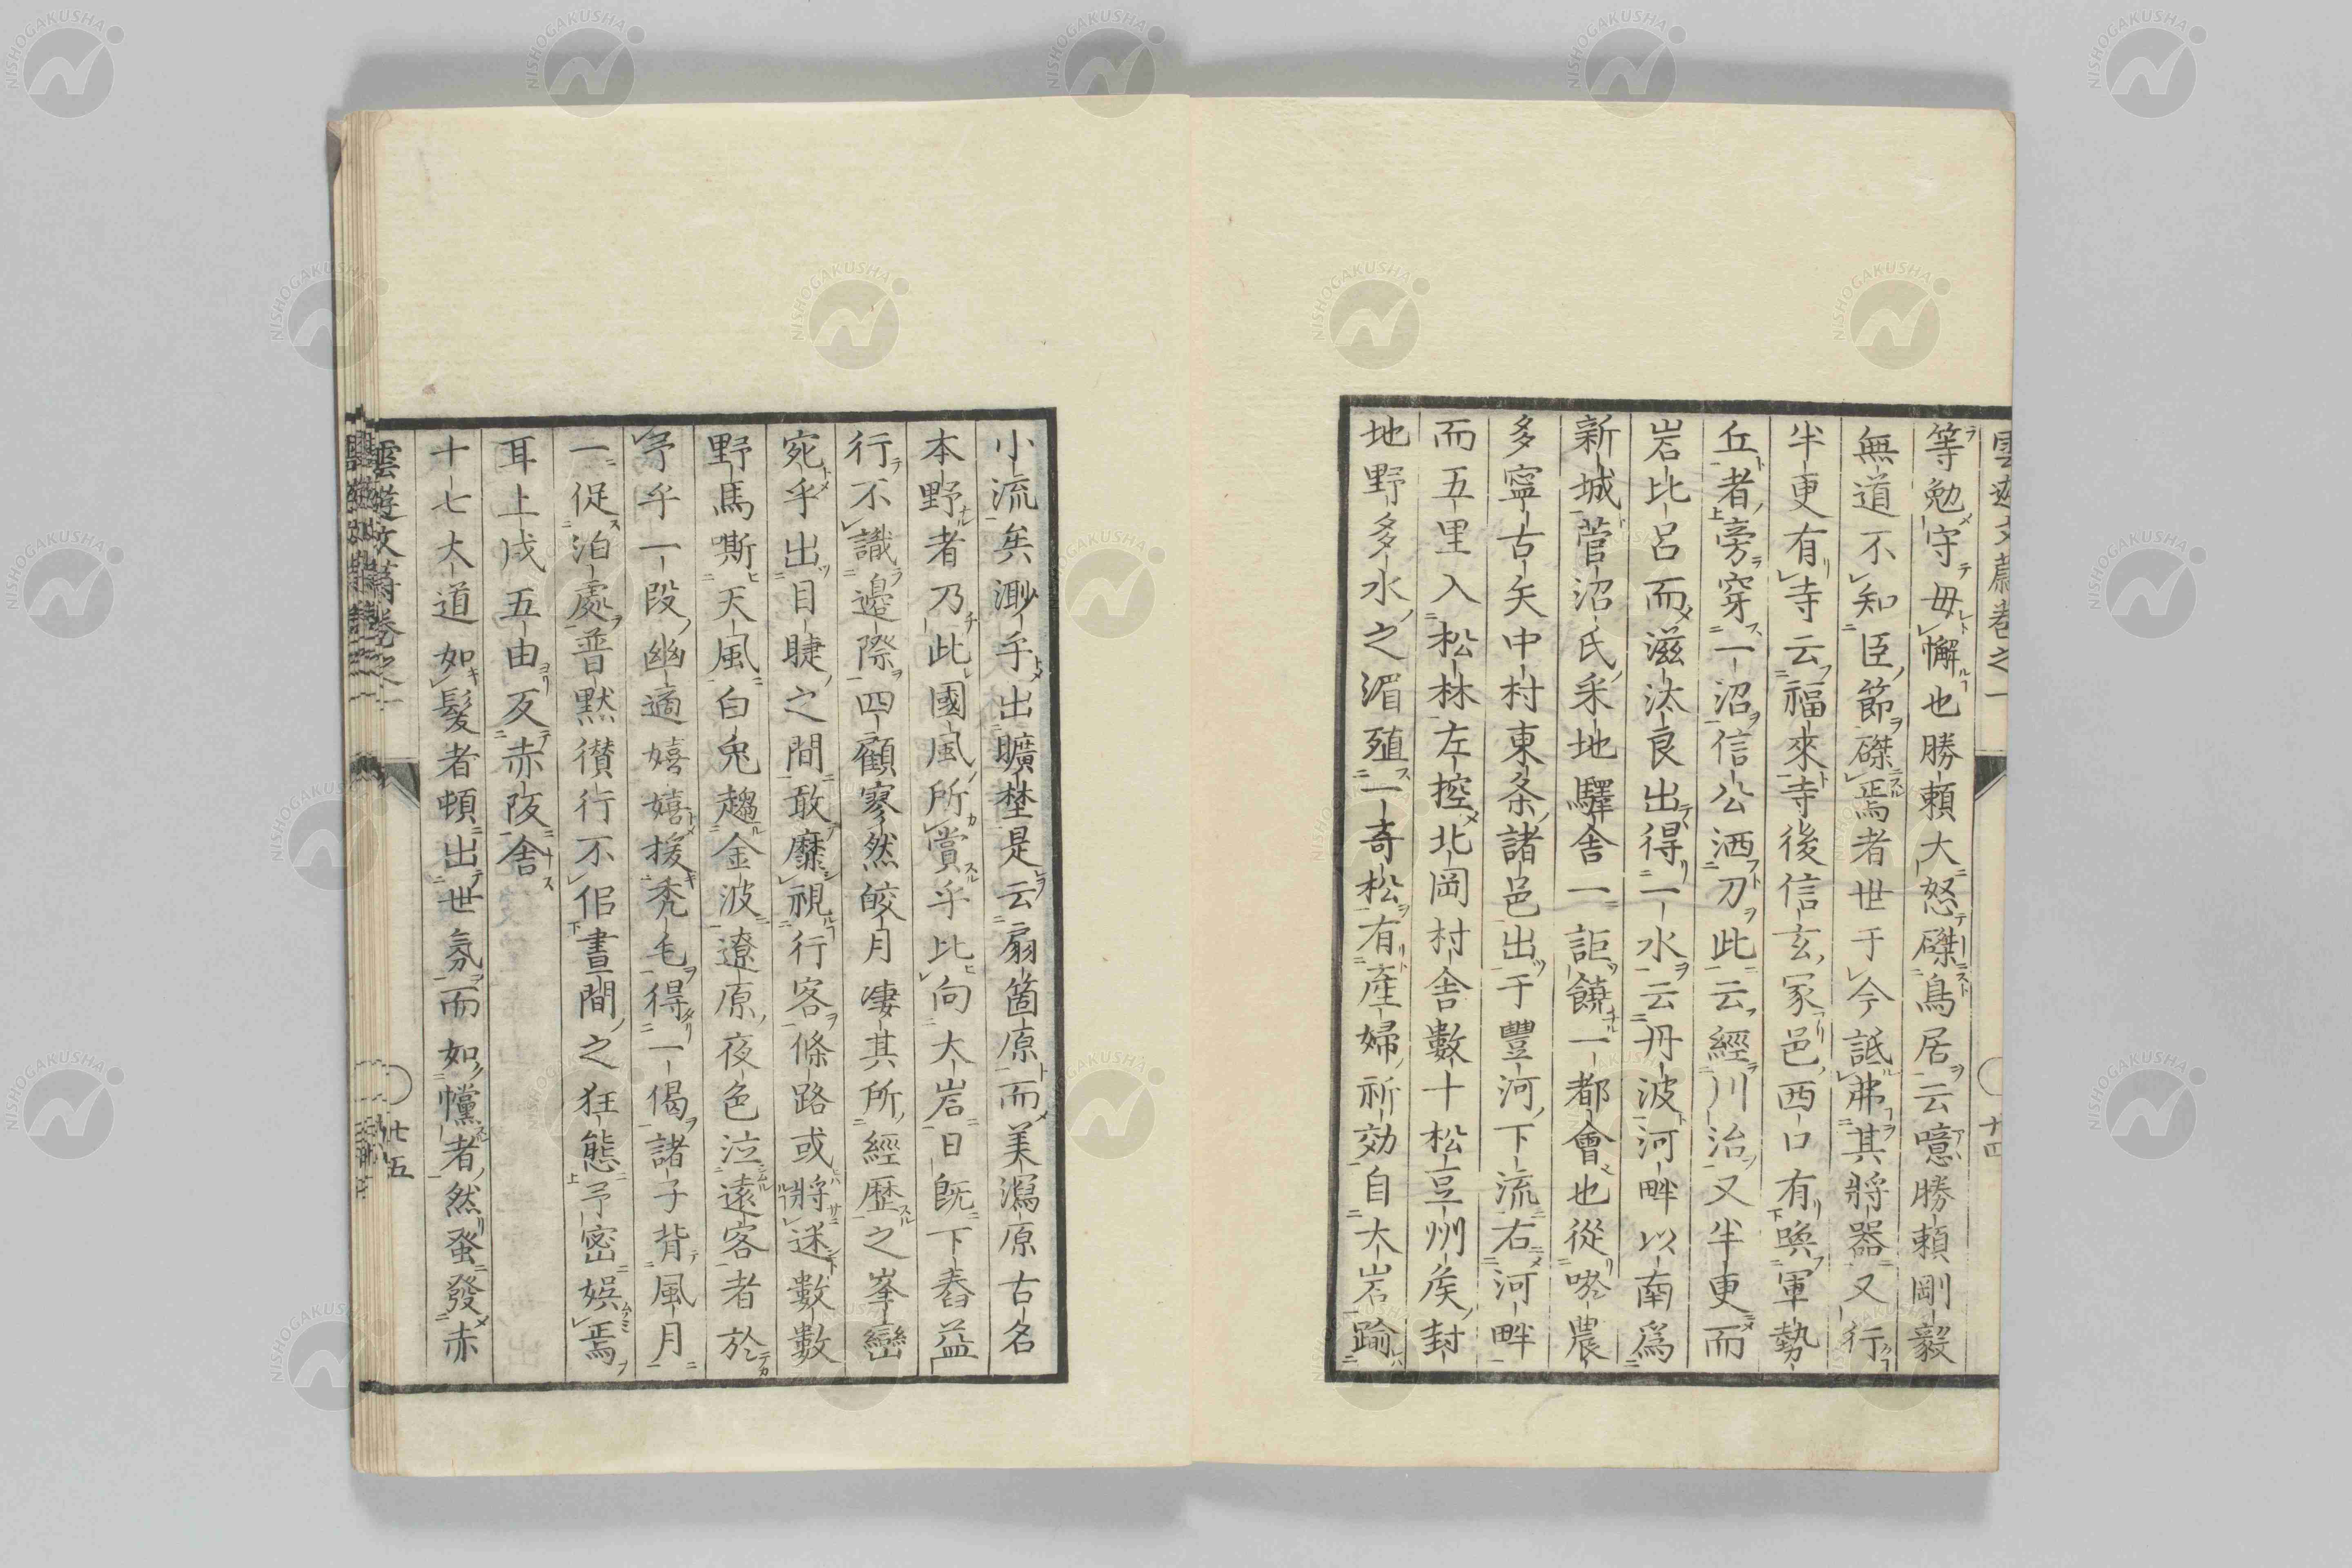 雲遊文蔚卷之一
十四
等勉守毋懈也勝賴大怒磔鳥居云噫勝賴剛毅
無道不知臣節磔焉者世于今詆弗其將器又行
半更有寺云福來寺後信玄冢邑西口有喚軍勢
丘者旁穿一沼信公洒刀此云經川治又半更而
岩比呂而滋汰良出得一水云丹波河畔以南爲
新城菅沼氏采地驛舍一詎饒一都會也從農
多寧古矢中村東条諸邑出于豐河下流右河畔
而五里入松林左控北岡村舍數十松豆州矦封
地野多水之湄殖一奇松有產婦祈効自大岩踰
小流矣渺乎出曠埜是云扇箇原而美瀉原古名
本野者乃此國風所賞乎比向大岩日旣下舂益
行不識邊際四顧寥然皎月凄其所經歷之峯巒
宛乎出目睫之間敢靡視行客條路或將迷數數
野馬嘶天風白兔趨金波遼原夜色泣遠客者於
予乎一段幽適嬉嬉援禿毛得一偈諸子背風月
一促泊處普默徣行不佀晝間之狂態予密娯焉
耳上戌五由亙赤阪舍
十七大道如髮者頓出世氛而如戃者然蚤發赤
雲遊文蔚卷之一
廿五